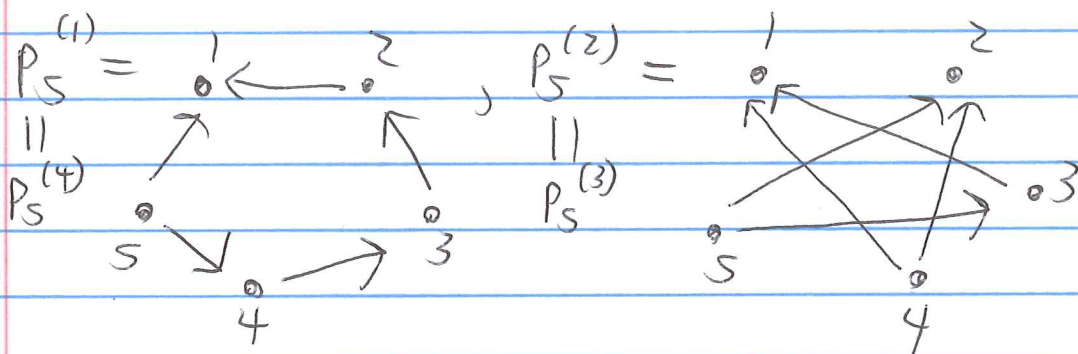 P₅⁽¹⁾ = 1 2 , P₅⁽²⁾ = 1 2
|| ||
P₅⁽⁴⁾ 5 3 P₅⁽³⁾ 5 3
4 4